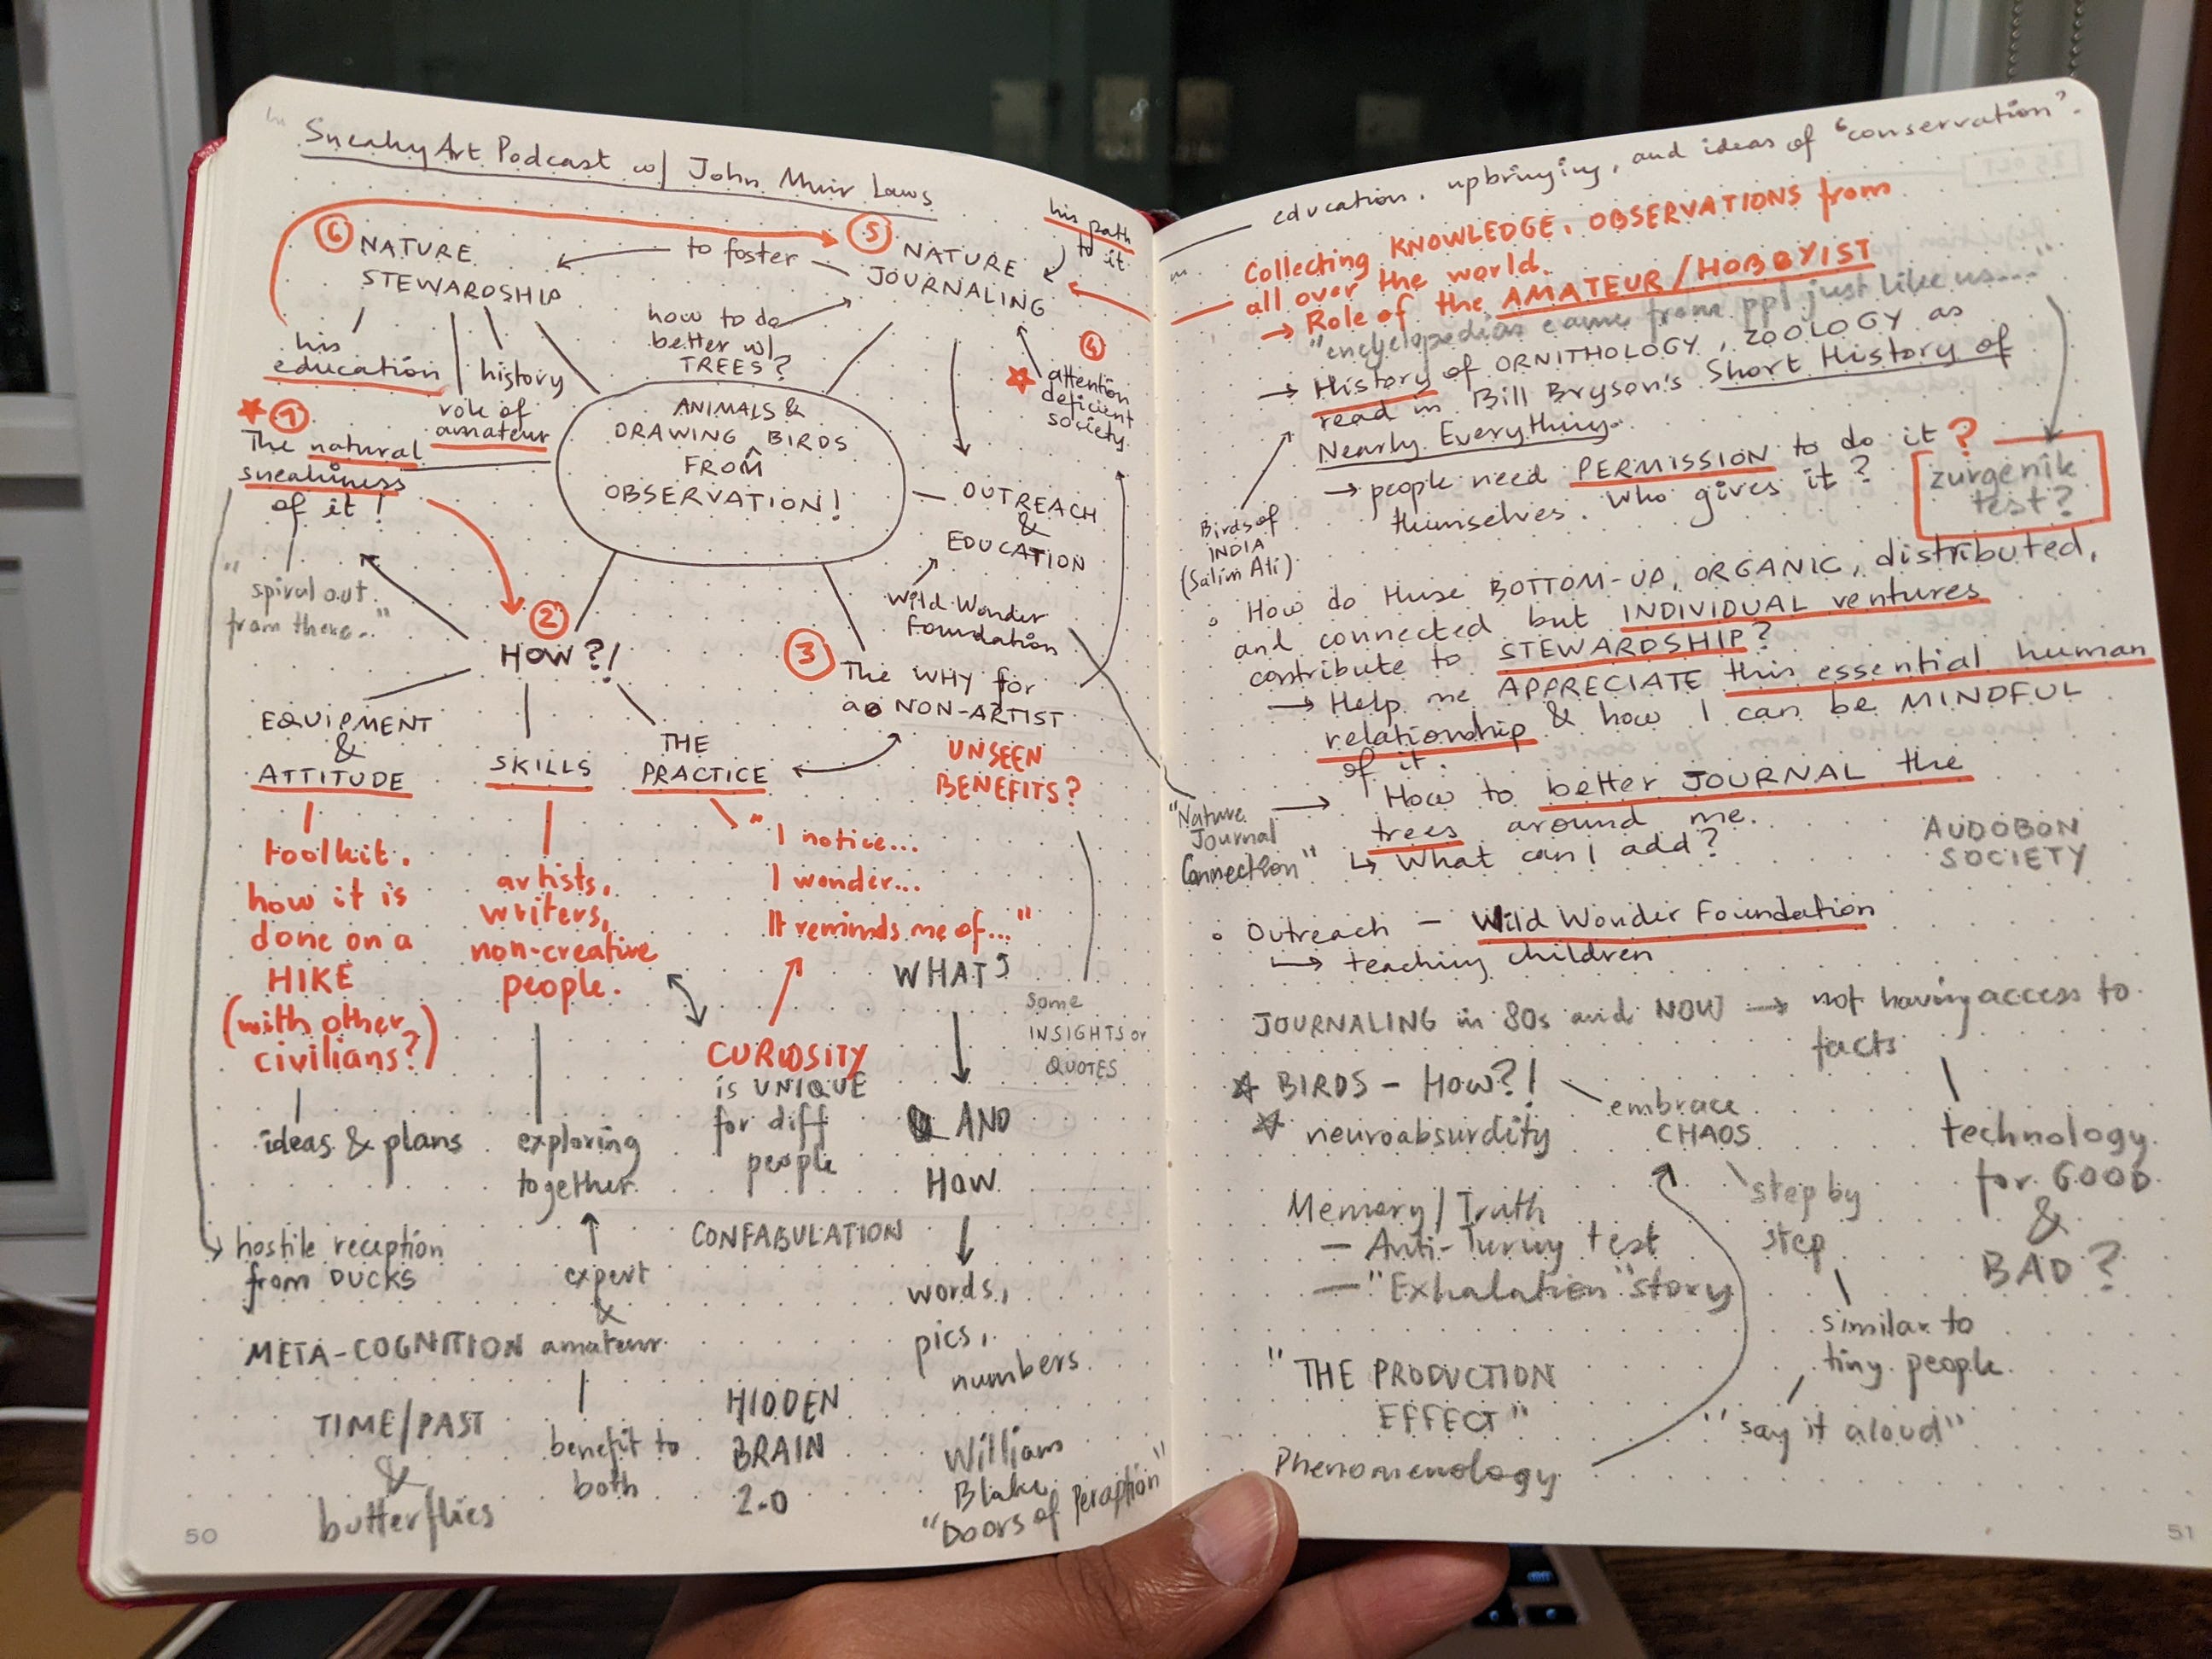 SneakyArt Podcast w/ John Muir Laws
his path
to it
6 NATURE
STEWARDSHIP
to foster
5 NATURE
JOURNALING
how to do
better w/
TREES?
his
education
history
role of
amateur
4
attention
deficient
society
1
The natural
sneakiness
of it!
"spiral out
from there.."
ANIMALS &
DRAWING BIRDS
FROM
OBSERVATION!
OUTREACH
&
EDUCATION
Wild Wonder
Foundation
2
HOW?!
3 The WHY for
a NON-ARTIST
UNSEEN
BENEFITS?
EQUIPMENT
&
ATTITUDE
SKILLS
THE
PRACTICE
toolkit.
how it is
done on a
HIKE
(with other
civilians?)
ideas & plans
artists,
writers,
non-creative
people.
exploring
together
expert
&
amateur
benefit to
both
"I notice...
I wonder...
It reminds me of..."
CURIOSITY
is UNIQUE
for diff
people
CONFABULATION
WHAT
AND
HOW
words,
pics,
numbers.
some
INSIGHTS or
QUOTES
hostile reception
from DUCKS
META-COGNITION
TIME/PAST
&
butterflies
HIDDEN
BRAIN
2.0
William
Blake
"Doors of Peraption"
50
education, upbringing, and ideas of "conservation".
Collecting KNOWLEDGE, OBSERVATIONS from
all over the world.
→ Role of the AMATEUR/HOBBYIST
"encyclopedias came from ppl just like us...."
→ History of ORNITHOLOGY, ZOOLOGY as
read in Bill Bryson's Short History of
Nearly Everything.
→ people need PERMISSION to do it?
themselves. Who gives it?
zurgenik
test?
Birds of
INDIA
(Salim Ali)
• How do these BOTTOM-UP, ORGANIC, distributed,
and connected but INDIVIDUAL ventures
contribute to STEWARDSHIP?
→ Help me APPRECIATE this essential human
relationship & how I can be MINDFUL
of it.
"Nature
Journal
Connection"
→ How to better JOURNAL the
trees around me.
↳ What can I add?
AUDOBON
SOCIETY
• Outreach – Wild Wonder Foundation
↳ teaching children
JOURNALING in 80s and NOW → not having access to
facts
☆ BIRDS – HOW?!
☆ neuroabsurdity
embrace
CHAOS
step by
step
similar to
tiny people
"say it aloud"
technology
for GOOD
&
BAD?
Memory/Truth
– Anti-Turing test
– "Exhalation" story
"THE PRODUCTION
EFFECT"
Phenomenology
51